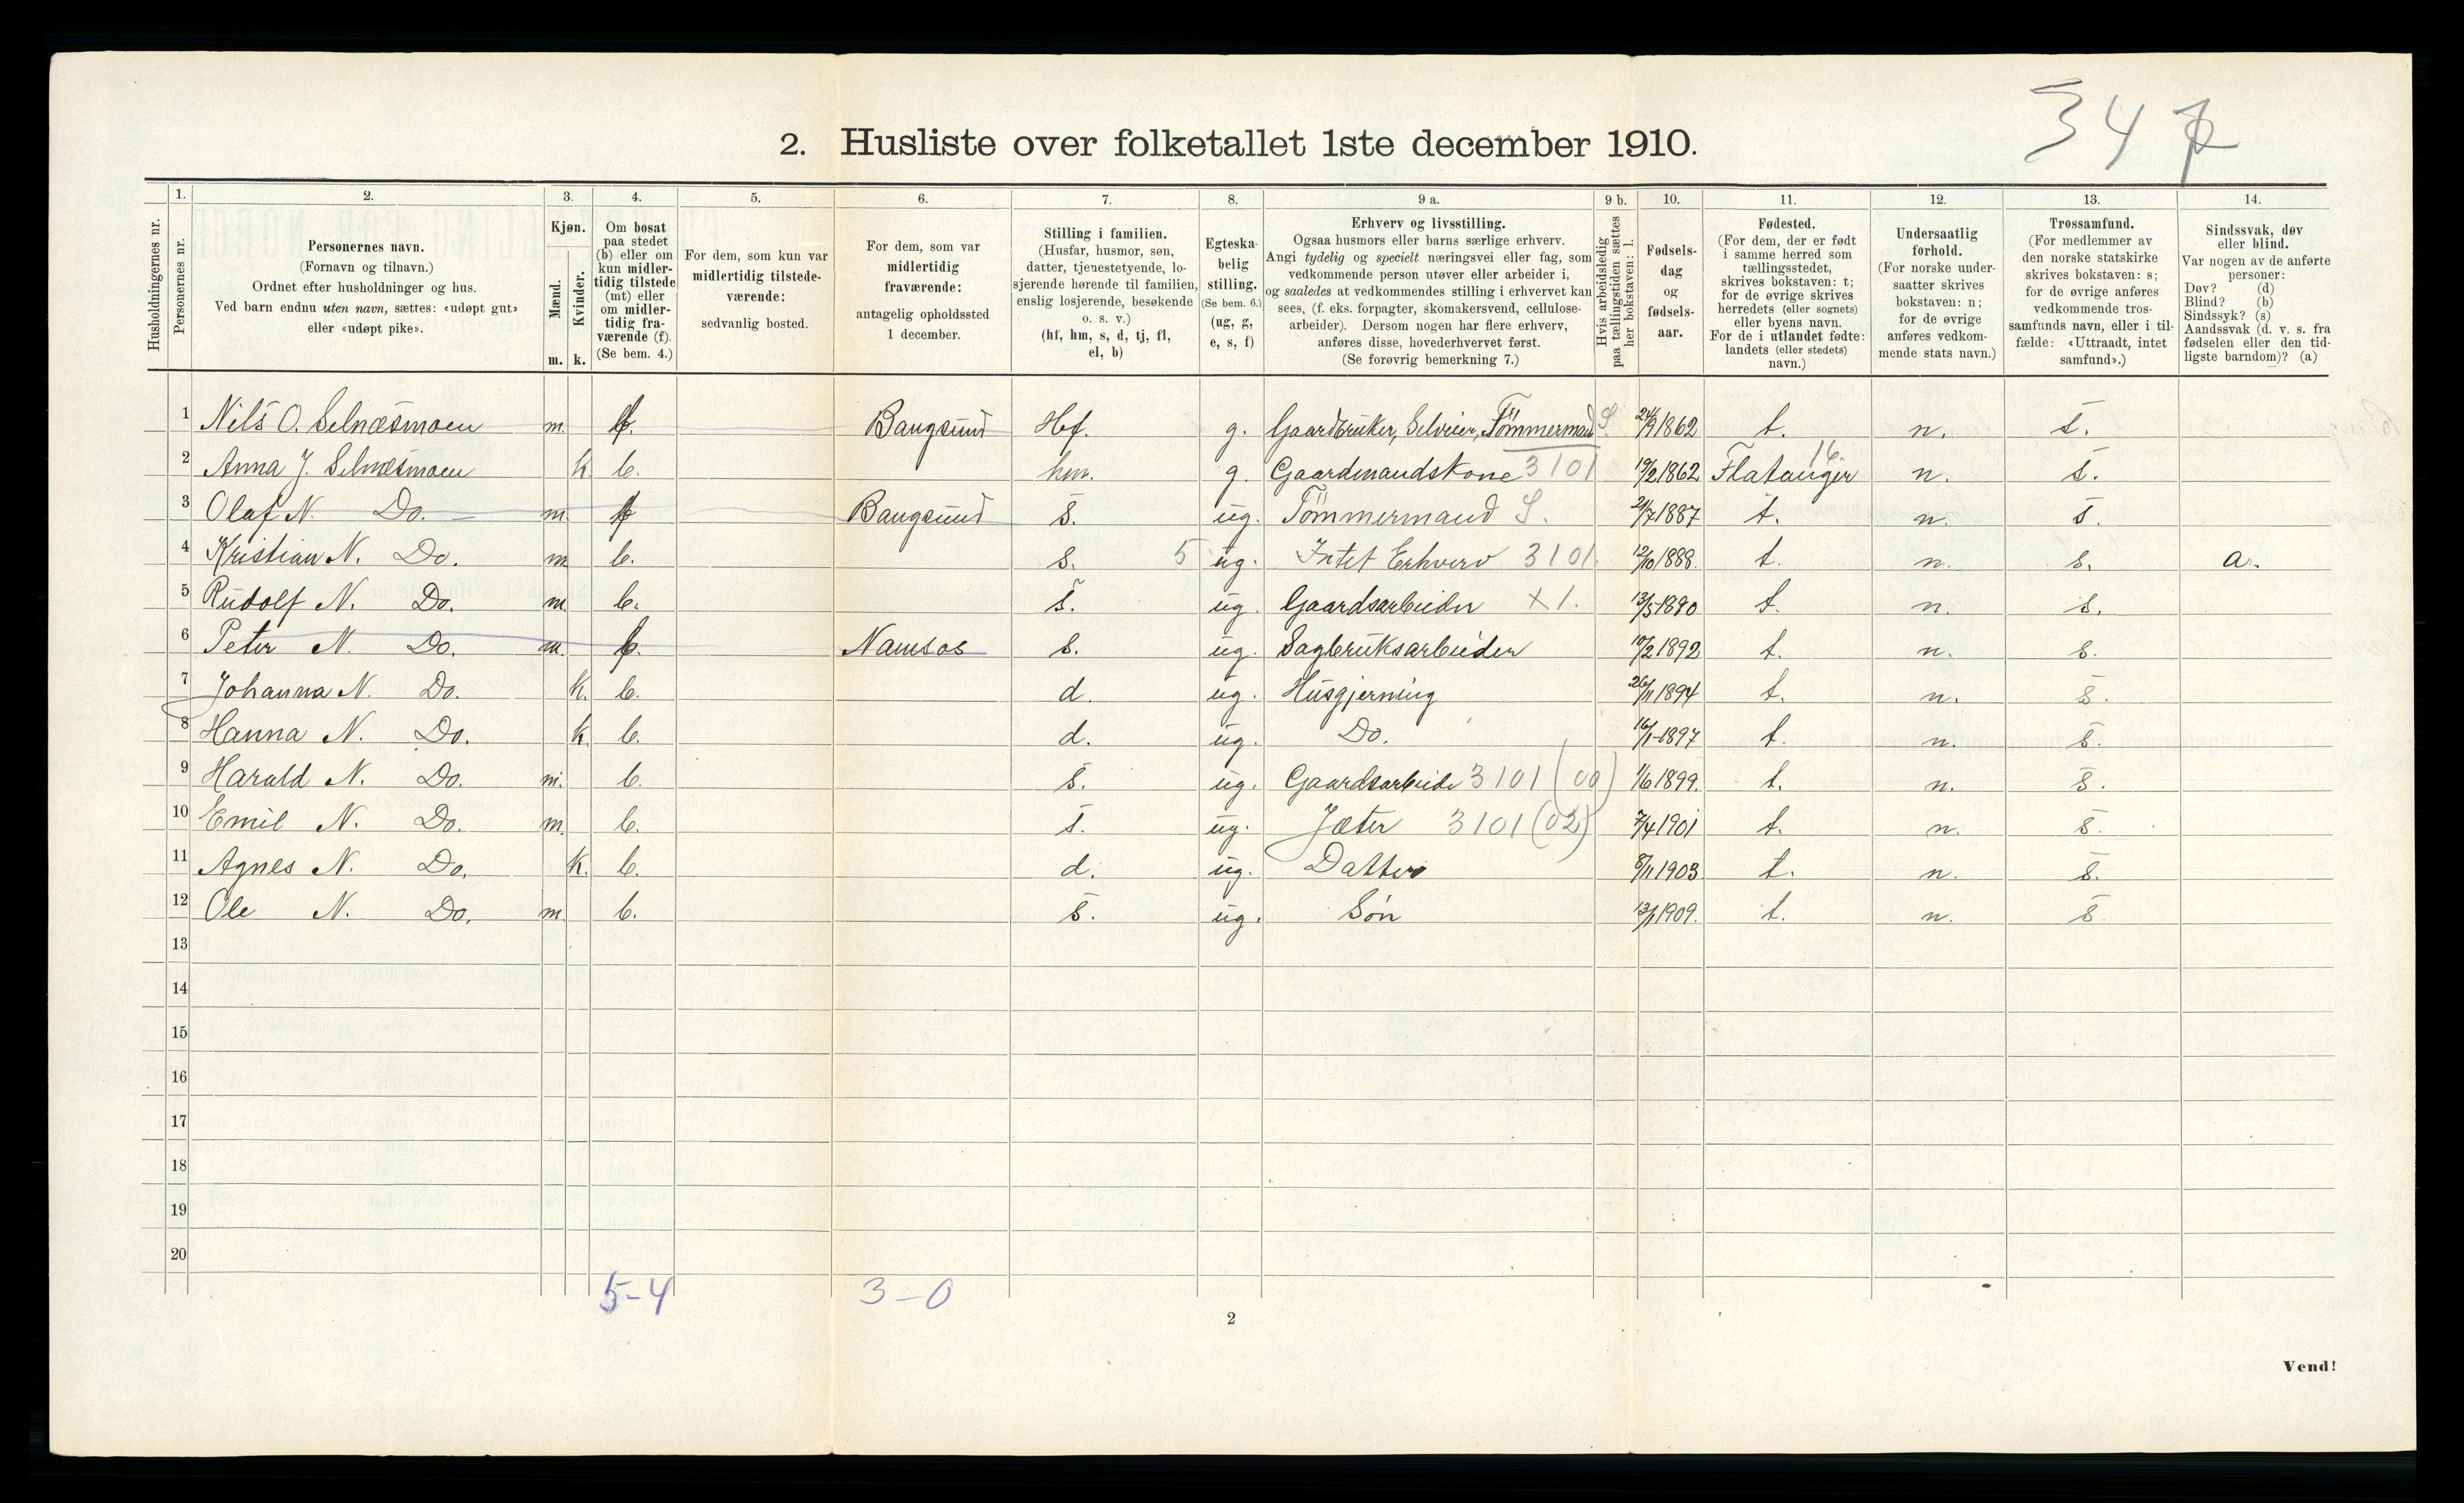 34
2. Husliste over folketallet 1ste december 1910.
Husholdningernes nr.
1. Personernes nr.
2. Personernes navn.
(Fornavn og tilnavn.)
Ordnet efter husholdninger og hus.
Ved barn endnu uten navn, sættes: «udøpt gut»
eller «udøpt pike».
3. Kjøn.
Mænd. m.
Kvinder. k.
4. Om bosat
paa stedet
(b) eller om
kun midler-
tidig tilstede
(mt) eller
om midler-
tidig fra-
værende (f).
(Se bem. 4.)
5. For dem, som kun var
midlertidig tilstede-
værende:
sedvanlig bosted.
6. For dem, som var
midlertidig
fraværende:
antagelig opholdssted
1 december.
7. Stilling i familien.
(Husfar, husmor, søn,
datter, tjenestetyende, lo-
sjerende hørende til familien,
enslig losjerende, besøkende
o. s. v.)
(hf, hm, s, d, tj, fl,
el, b)
8. Egteska-
belig
stilling.
(Se bem. 6.)
(ug, g,
e, s, f)
9 a. Erhverv og livsstilling.
Ogsaa husmors eller barns særlige erhverv.
Angi tydelig og specielt næringsvei eller fag, som
vedkommende person utøver eller arbeider i,
og saaledes at vedkommendes stilling i erhvervet kan
sees, (f. eks. forpagter, skomakersvend, cellulose-
arbeider). Dersom nogen har flere erhverv,
anføres disse, hovederhvervet først.
(Se forøvrig bemerkning 7.)
9 b. Hvis arbeidsledig
paa tællingstiden sættes
her bokstaven: l.
10. Fødsels-
dag
og
fødsels-
aar.
11. Fødested.
(For dem, der er født
i samme herred som
tællingsstedet,
skrives bokstaven: t;
for de øvrige skrives
herredets (eller sognets)
eller byens navn.
For de i utlandet fødte:
landets (eller stedets)
navn.)
12. Undersaatlig
forhold.
(For norske under-
saatter skrives
bokstaven: n;
for de øvrige
anføres vedkom-
mende stats navn.)
13. Trossamfund.
(For medlemmer av
den norske statskirke
skrives bokstaven: s;
for de øvrige anføres
vedkommende tros-
samfunds navn, eller i til-
fælde: «Uttraadt, intet
samfund».)
14. Sindssvak, døv
eller blind.
Var nogen av de anførte
personer:
Døv? (d)
Blind? (b)
Sindssyk? (s)
Aandssvak (d. v. s. fra
fødselen eller den tid-
ligste barndom)? (a)
1 Nils O. Selnæsmoen m. f. Bangsund Hf. g. Gaardbruker, Selveier, Tømmermand S. 24/9 1862 t. n. s.
2 Anna J. Selnæsmoen k. b. hm. g. Gaardmandskone 3101 19/2 1862 Flatanger 16. n. s.
3 Olaf N. Do. m. f Bangsund s. ug. Tømmermand S. 21/7 1887 t. n. s.
4 Kristian N. Do. m. b. s. 5 ug. Intet Erhverv 3101 12/10 1888. t. n. s. a.
5 Rudolf N. Do. m. b. s. ug. Gaardsarbeider X1. 13/5 1890 t. n. s.
6 Peter N. Do. m. f. Namsos s. ug. Sagbruksarbeider 10/2 1892 t. n. s.
7 Johanna N. Do. k. b. d. ug. Husgjerning 26/11 1894 t. n. s.
8 Hanna N. Do. k. b. d. ug. Do. 16/1 1897 t. n. s.
9 Harald N. Do. m. b. s. ug. Gaardsarbeide 3101 (00) 1/6 1899. t. n. s.
10 Emil N. Do. m. b. s. ug. Jæter 3101 (02) 7/4 1901 t. n. s.
11 Agnes N. Do. k. b. d. ug. Datter 8/11 1903 t. n. s.
12 Ole N. Do. m. b. s. ug. Søn 13/1 1909. t. n. s.
13
14
15
16
17
18
19
20
5-4 3-0
2
Vend!